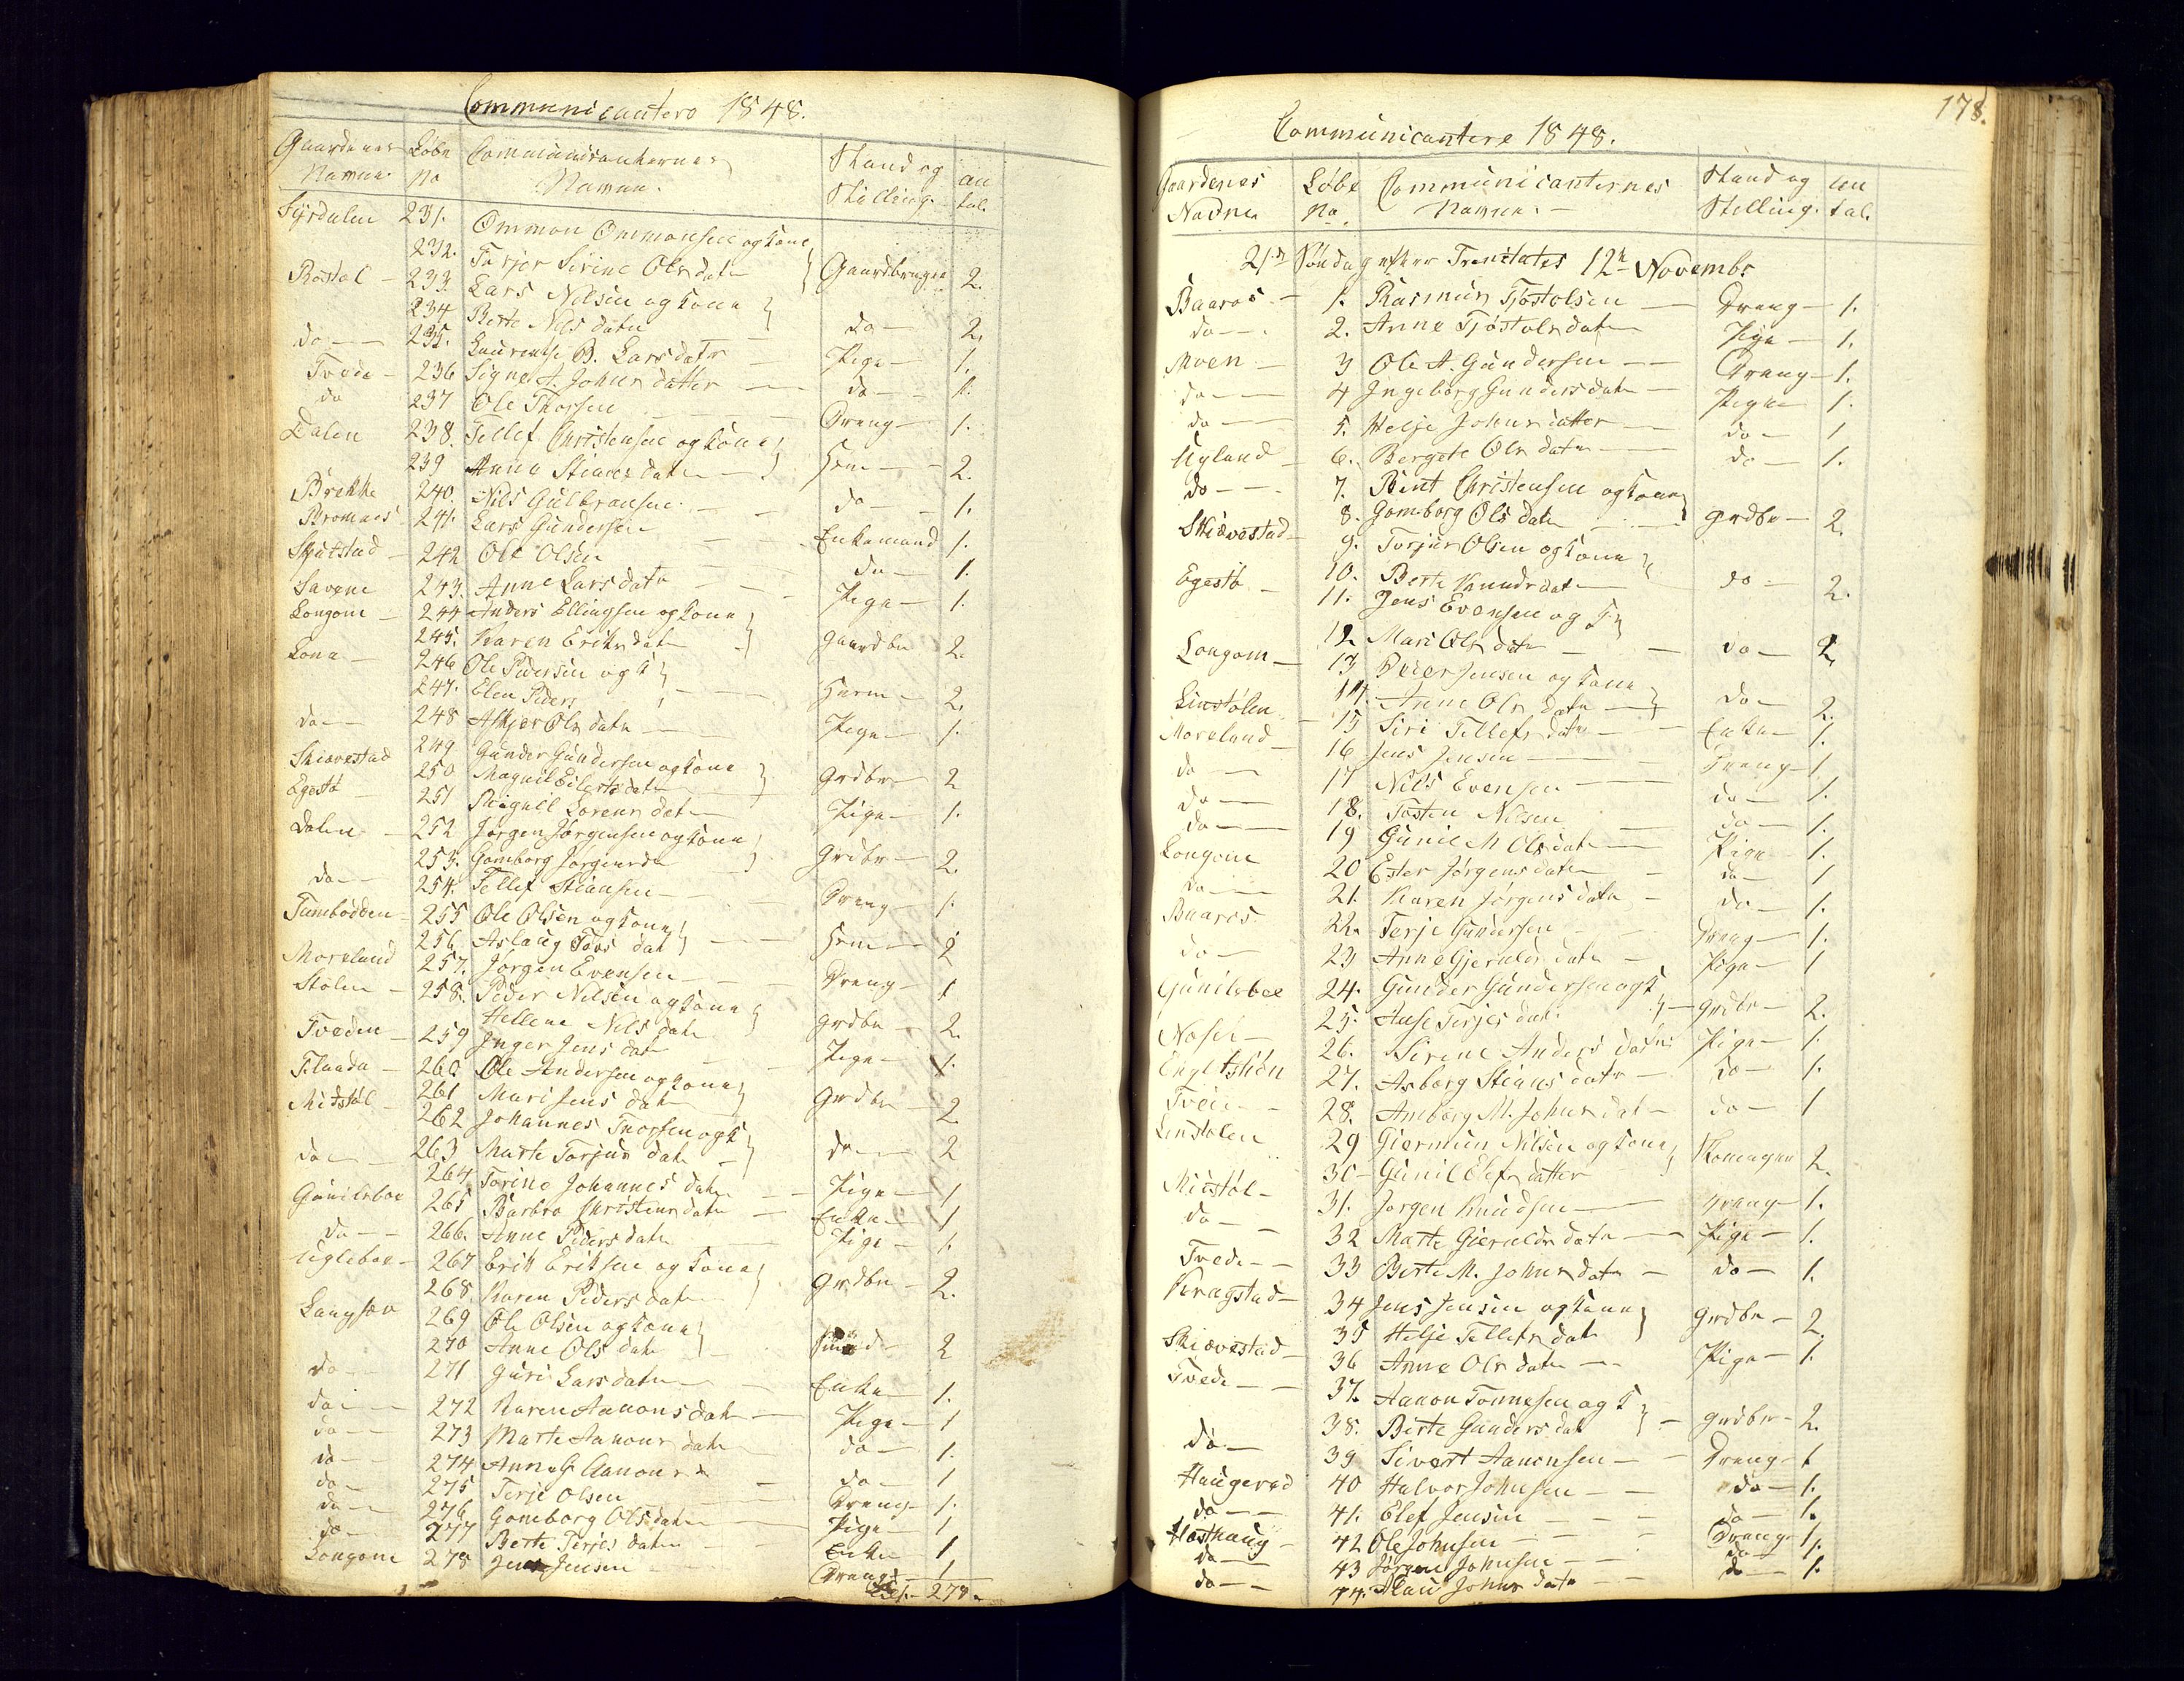 Communicantere 1848.
Gaardenes Løbe Communicanternes Stand og an
Navne. No Navne. Stilling. tal.
Syrdalen 231. Ommon Ommonsen og Kone
232. Tarjer Sirine Olsdatr Gaardbruger 2.
Røstøl 233. Lars Nilsen og Kone
234 Berte Nilsdatr do 2.
do 235. Laurentse B. Larsdatr Pige 1.
Tvede 236 Signe A. Johnsdatter do 1.
do 237 Ole Thorsen Dreng 1.
Dalen 238. Tellef Christensen og Kone
239 Anne Stiansdatr Hsm 2.
Brekke 240. Nils Gulbransen do 1.
Bromnes 241. Lars Gundersen Enkemand 1.
242 Ole Olsen do 1.
Savene 243. Anne Larsdatr Pige 1.
Longom 244 Anders Ellingsen og Kone
245. Karen Eriksdatr Gaardbr 2.
Lona 246 Ole Pedersen og K
247. Elen Peders Husm 2.
do 248 Olsdatr Pige 1.
Skiævestad 249 Gunder Gundersen og Kone
250 Magnil Eilertsdatr Grdbr 2
Egestø 251 Ragnil Lorensdatr Pige 1.
Dalen 252 Jørgen Jørgensen og Kone
253. Gomborg Jørgensd Grdbr 2.
do 254. Tellef Stiansen Dreng 1.
255 Ole Olsen og Kone
256. Aslaug Tovsdat Hsm 2
Moreland 257. Jørgen Evensen Dreng 1
Stølen 258. Peder Nilsen og Kone
Hellene Nilsdatr Grdbr 2.
Tveden 259 Inger Jensdatr Pige 1.
Flaada 260. Ole Andersen og Kone
261 Mari Jensdatr Grdbr 2
Midtstøl 262 Johannes Thorsen og K
do 263 Marte Torjusdatr do 2
264 Torine Johannesdatr Pige 1
Gunilsboe 265 Barbro Christensdatr Enke 1
do 266. Anne Pedersdatr Pige 1.
Ugleboe 267 Erik Eriksen og Kone
268. Karen Pedersdatr Grdbr 2.
Langsæv 269 Ole Olsen og Kone
270 Anne Olsdatr 2
do 271 Guri Larsdatr Enke 1.
do 272 Karen Aanonsdatr Pige 1
do 273 Marte Aanonsdatr do 1.
do 274 Anne G Aanonsd do 1
do 275 Terje Olsen Dreng 1.
do 276 Gomborg Olsdatr Pige 1
do 277 Berte Terjesdatr Enke 1
Longom 278 Jens Jensen Dreng 1
278.
178.
Communicantere 1848.
Gaardenes Løbe Communicanternes Stand og an
Navne No. Navne. Stilling. tal.
21de Søndag efter Trenitates 12te Novembr
Baaros 1. Rasmus Tjøstolsen Dreng 1.
do 2. Anne Tjøstolsdatr Pige 1.
Moen 3 Ole A. Gundersen Dreng 1.
do 4 Ingeborg Gundersdatr Pige 1.
do 5. Helje Johnsdatter do 1
Ugland 6. Bergete Olsdatr do 1.
do 7. Bent Christensen og Kone
8. Gomborg Olsdatr Grdbr 2.
Skiævestad 9. Torjus Olsen og Kone
10. Berte Knudsdatr do 2.
Egestø 11. Jens Evensen og K
12 Mari Olsdatr do 2.
Longom 13 Peder Jensen og Kone
14. Anne Olsdatr do 2.
Linstølen 15 Siri Tellefsdatr Enke 1.
Moreland 16 Jens Jensen Dreng 1.
do 17 Nils Evensen do 1.
do 18. Tosten Nilsen do 1.
do 19 Gunil M Olsdatr Pige 1.
Longom 20 Ester Jørgensdatr do 1
do 21. Karen Jørgensdatr do 1.
Baaros 22. Terje Gundersen Dreng 1.
do 23 Anne Gjeruldsdatr Pige 1
Gunilsboe 24. Gunder Gundersen og K
25. Anse Terjesdatr Grdbr 2.
26. Sirene Andersdatter Pige 1.
27. Asborg Stiansdatr do 1.
Tvede 28. Anborg M. Johnsdat do 1
Linstølen 29 Giermun Nilsen og Kone
30 Gunil Elefsdatter Skomager 2.
Midstøl 31. Jørgen Knudsen Dreng 1.
do 32 Marte Gieruldsdatr Pige 1.
Tvede 33 Berte M. Johnsdatr do 1.
Kragstad 34 Jens Jensen og Kone
35 Helje Tellefsdat Grdbr 2.
Skiævestad 36 Anne Olsdatr Pige 1.
Tvede 37. Aanon Tonnesen og K
38. Berte Gundersdat Grdbr 2.
do 39 Sivert Aanonsen Dreng 1
Haugerød 40 Halvor Johnsen do 1.
do 41. Elef Jensen do 1.
Hasthaug 42 Ole Johnsen Dreng 1.
do 43 Jørgen Johnsen do 1.
do 44. Johnsdatr do 1.